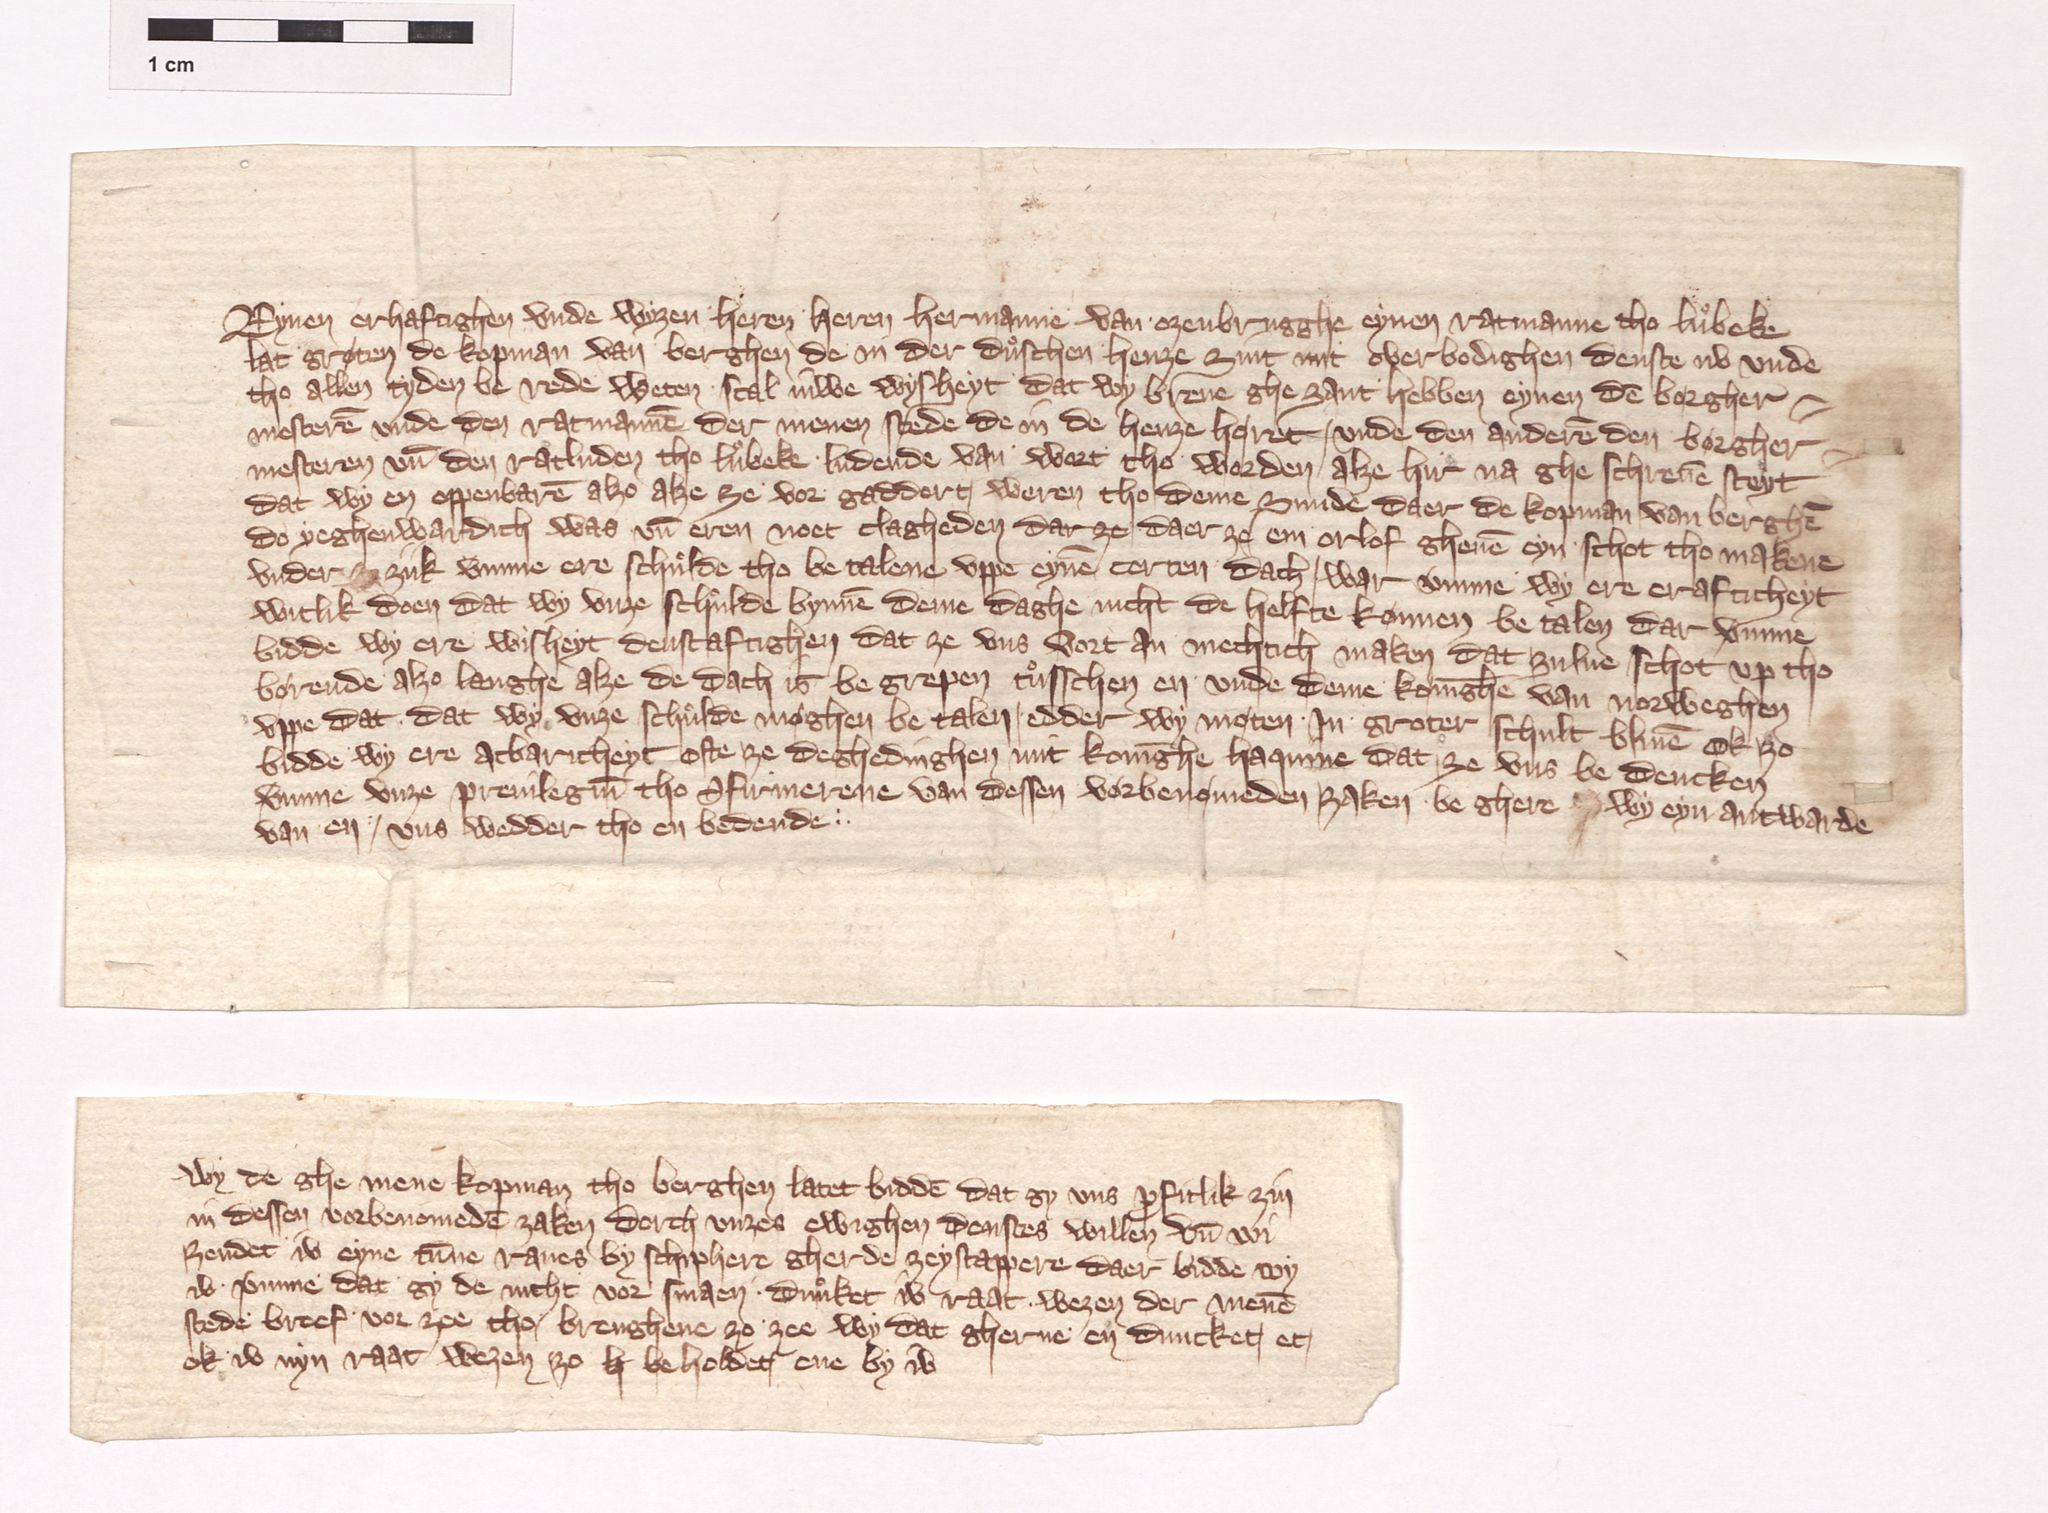 1 cm
Eynen erhaftighen vnde wyzen heren heren hermanne van ozenbrugghe eynen ratmanne tho lůbeke
lat groten de kopman van berghen de in der důschen henze zint mit overbodighen denste iw vnde
tho allen tyden be rede weten scal iuwe wysheyt dat wy breue ghe zant hebben eynen dē borgher
mesterē vnde den ratmannē der menen stede de in de henze horet / vnde den anderē den borgher
mesteren vn̄ den ratluden tho lůbeke ludende van wort tho worden / alze hir na ghe schreuē steyt
dat wy en oppenbarē alzo alze ze vor gaddert weren tho deme zunde daer de kopman van berghē
do yeghenwardich was vn̄ eren noet clagheden dar ze daer ze em orlof gheuē eyn schot tho makene
vnder zik vmme ere schůlde tho be talene vppe eynē certen dach / war vmme wy ere erafticheyt
witlik doen dat wy vnze schůlde bynnē deme daghe nicht de helfte konnen be talen dar vmme
bidde wy ere wisheyt denstaftighen dat ze vns vort an mechtich maken dat zulue schot vp tho
borende alzo langhe alze de dach is be grepen tůsschen en vnde deme konīghe van norweghen
vppe dat dat wy vnze schůlde moghen be talen / edder wy moten in groter schult bliuē Ok zo
bidde wy ere acbaricheyt ofte ze deghedinghen mit konīghe haquine dat ze vns be dencken
vmme vnze preuilegiū tho 9firmerene van dessen vorbenomeden zaken be ghere wy eyn antwarde
van en / vns wedder tho en bedende :.
wy de ghe mene kopman tho berghen latet biddē dat gy vns p̱fitlik zin
in dessen vorbenomedē zaken dorch vnzes ewighen denstes willen vn̄ wi
zendet iw eyne tūne raues by schiphere gherde zeystappere daer bidde wy
iw vmme dat gy de nicht vor smaen. důnket iw raat wezen der menē
stede breef vor zee tho brenghene zo zee wy dat gherne en duncket et
ok iw nyn raat wezen zo beholdet ene by iw